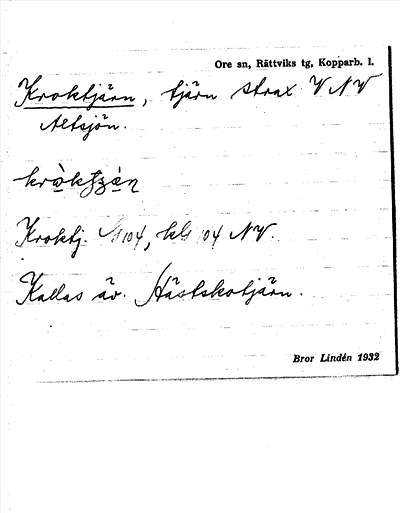 Ore sn, Rättviks tg, Kopparb. l.
Kroktjärn, tjärn strax V NV
Altsjön.
Kroktj. 104, kbl 104 NV.
Kallas äv. Hästskotjärn.
Bror Lindén 1932